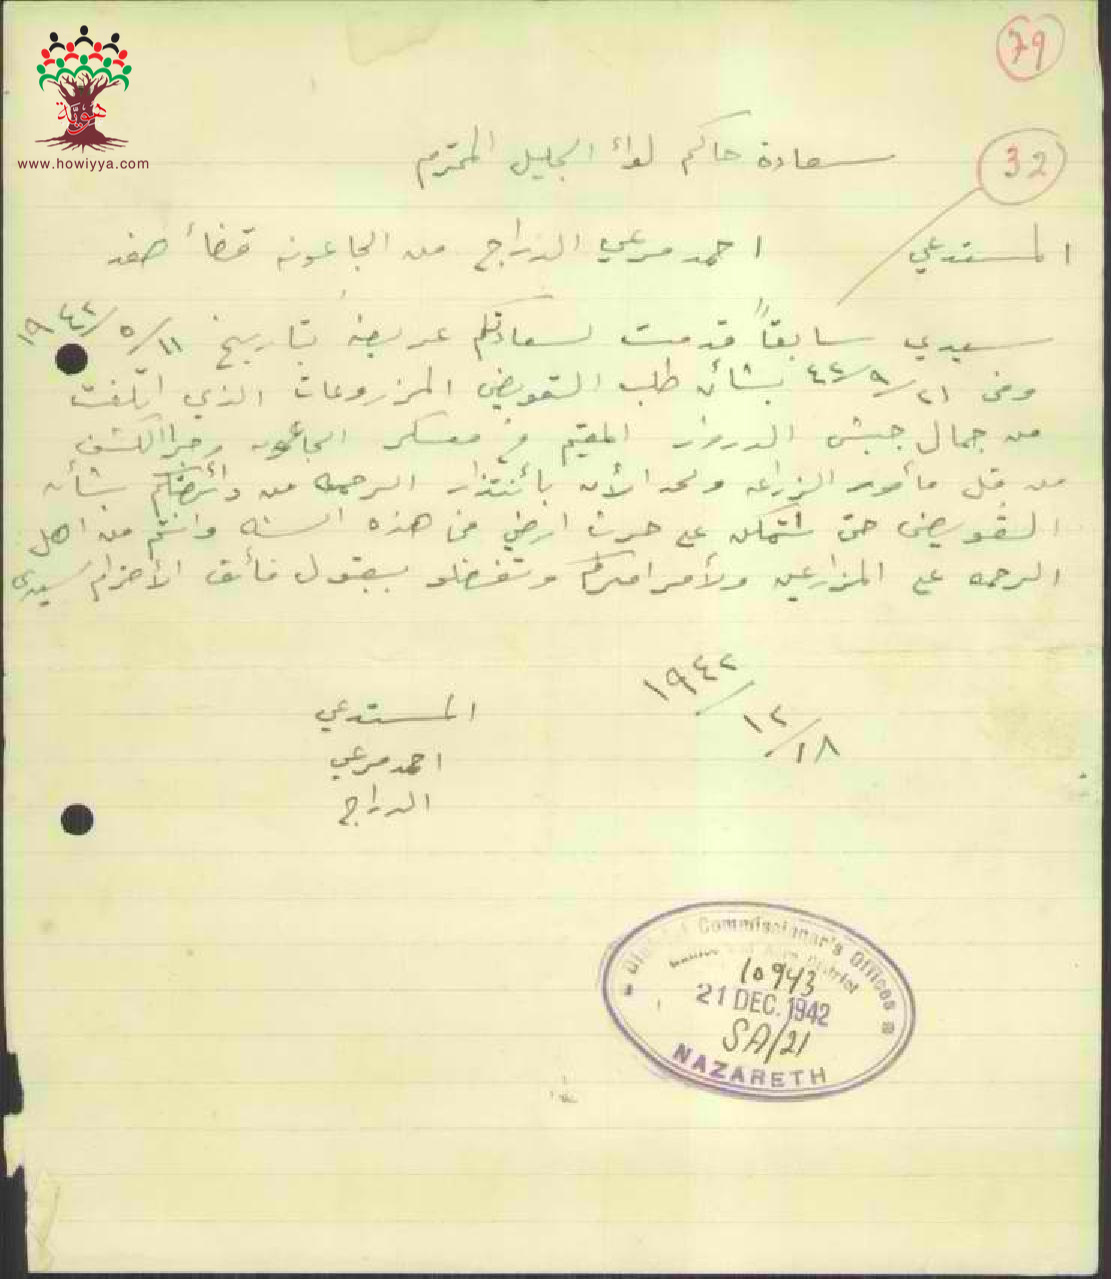 79
هوية
www.howiyya.com
سعادة حاكم لواء الجليل المحترم
32
المستدعي احمد مرعي الدراج من الجاعونه قضاء صفد
سيدي سابقاً قدمت لسعادتكم عريضه بتاريخ ١١/٥/١٩٤٢
وفي ٢١/٩/٤٢ بشأن طلب التعويض المزروعات الذي اتلفت
من جمال جيش الدروز المقيم في معسكر الجاعونه وجرا الكشف
من قبل مأمور الزراعه ولحد الأن بأنتذار الرحمه من دائرتكم بشأن
التعويض حتى نتمكن على حرث ارضي في هذه السنه وانتم من اهل
الرحمه على المزارعين ولأمر امركم وتفضلو بقبول فائق الأحترام سيدي
١٨/١٢/١٩٤٢
المستدعي
احمد مرعي
الدراج
District Commissioner's Offices
District
10943
21 DEC. 1942
SA/21
NAZARETH